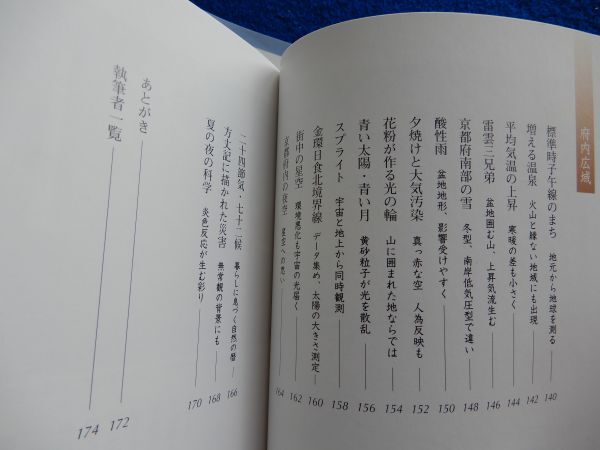 府内広域
標準時子午線のまち 地元から地球を測る 140
増える温泉 火山と縁ない地域にも出現 142
平均気温の上昇 寒暖の差も小さく 144
雷雲三兄弟 盆地囲む山、上昇気流生む 146
京都府南部の雪 冬型、南岸低気圧型で違い 148
酸性雨 盆地地形、影響受けやすく 150
夕焼けと大気汚染 真っ赤な空 人為反映も 152
花粉が作る光の輪 山に囲まれた地ならでは 154
青い太陽・青い月 黄砂粒子が光を散乱 156
スプライト 宇宙と地上から同時観測 158
金環日食北境界線 データ集め、太陽の大きさ測定 160
街中の星空 環境悪化も宇宙の光届く 162
京都府内の夜空 星空への思い 164
二十四節気・七十二候 暮らしに息づく自然の暦 166
方丈記に描かれた災害 無常観の背景にも 168
夏の夜の科学 炎色反応が生む彩り 170
あとがき 172
執筆者一覧 174